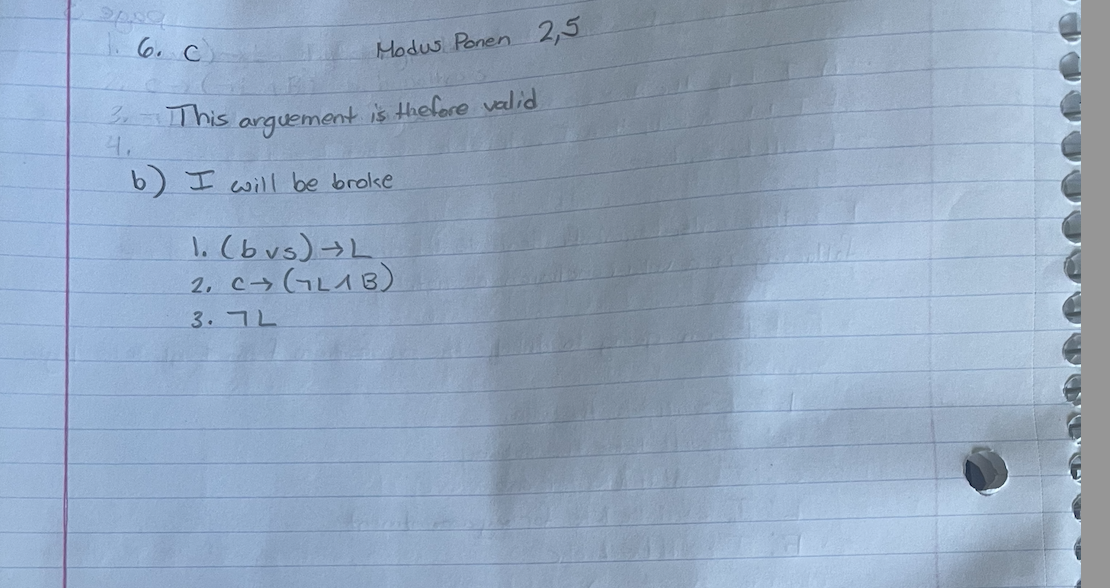 6. C Modus Ponen 2,5
3. This arguement is thefore valid
4.
b) I will be broke
1. (b v s) → L
2. C → (¬L ∧ B)
3. ¬L